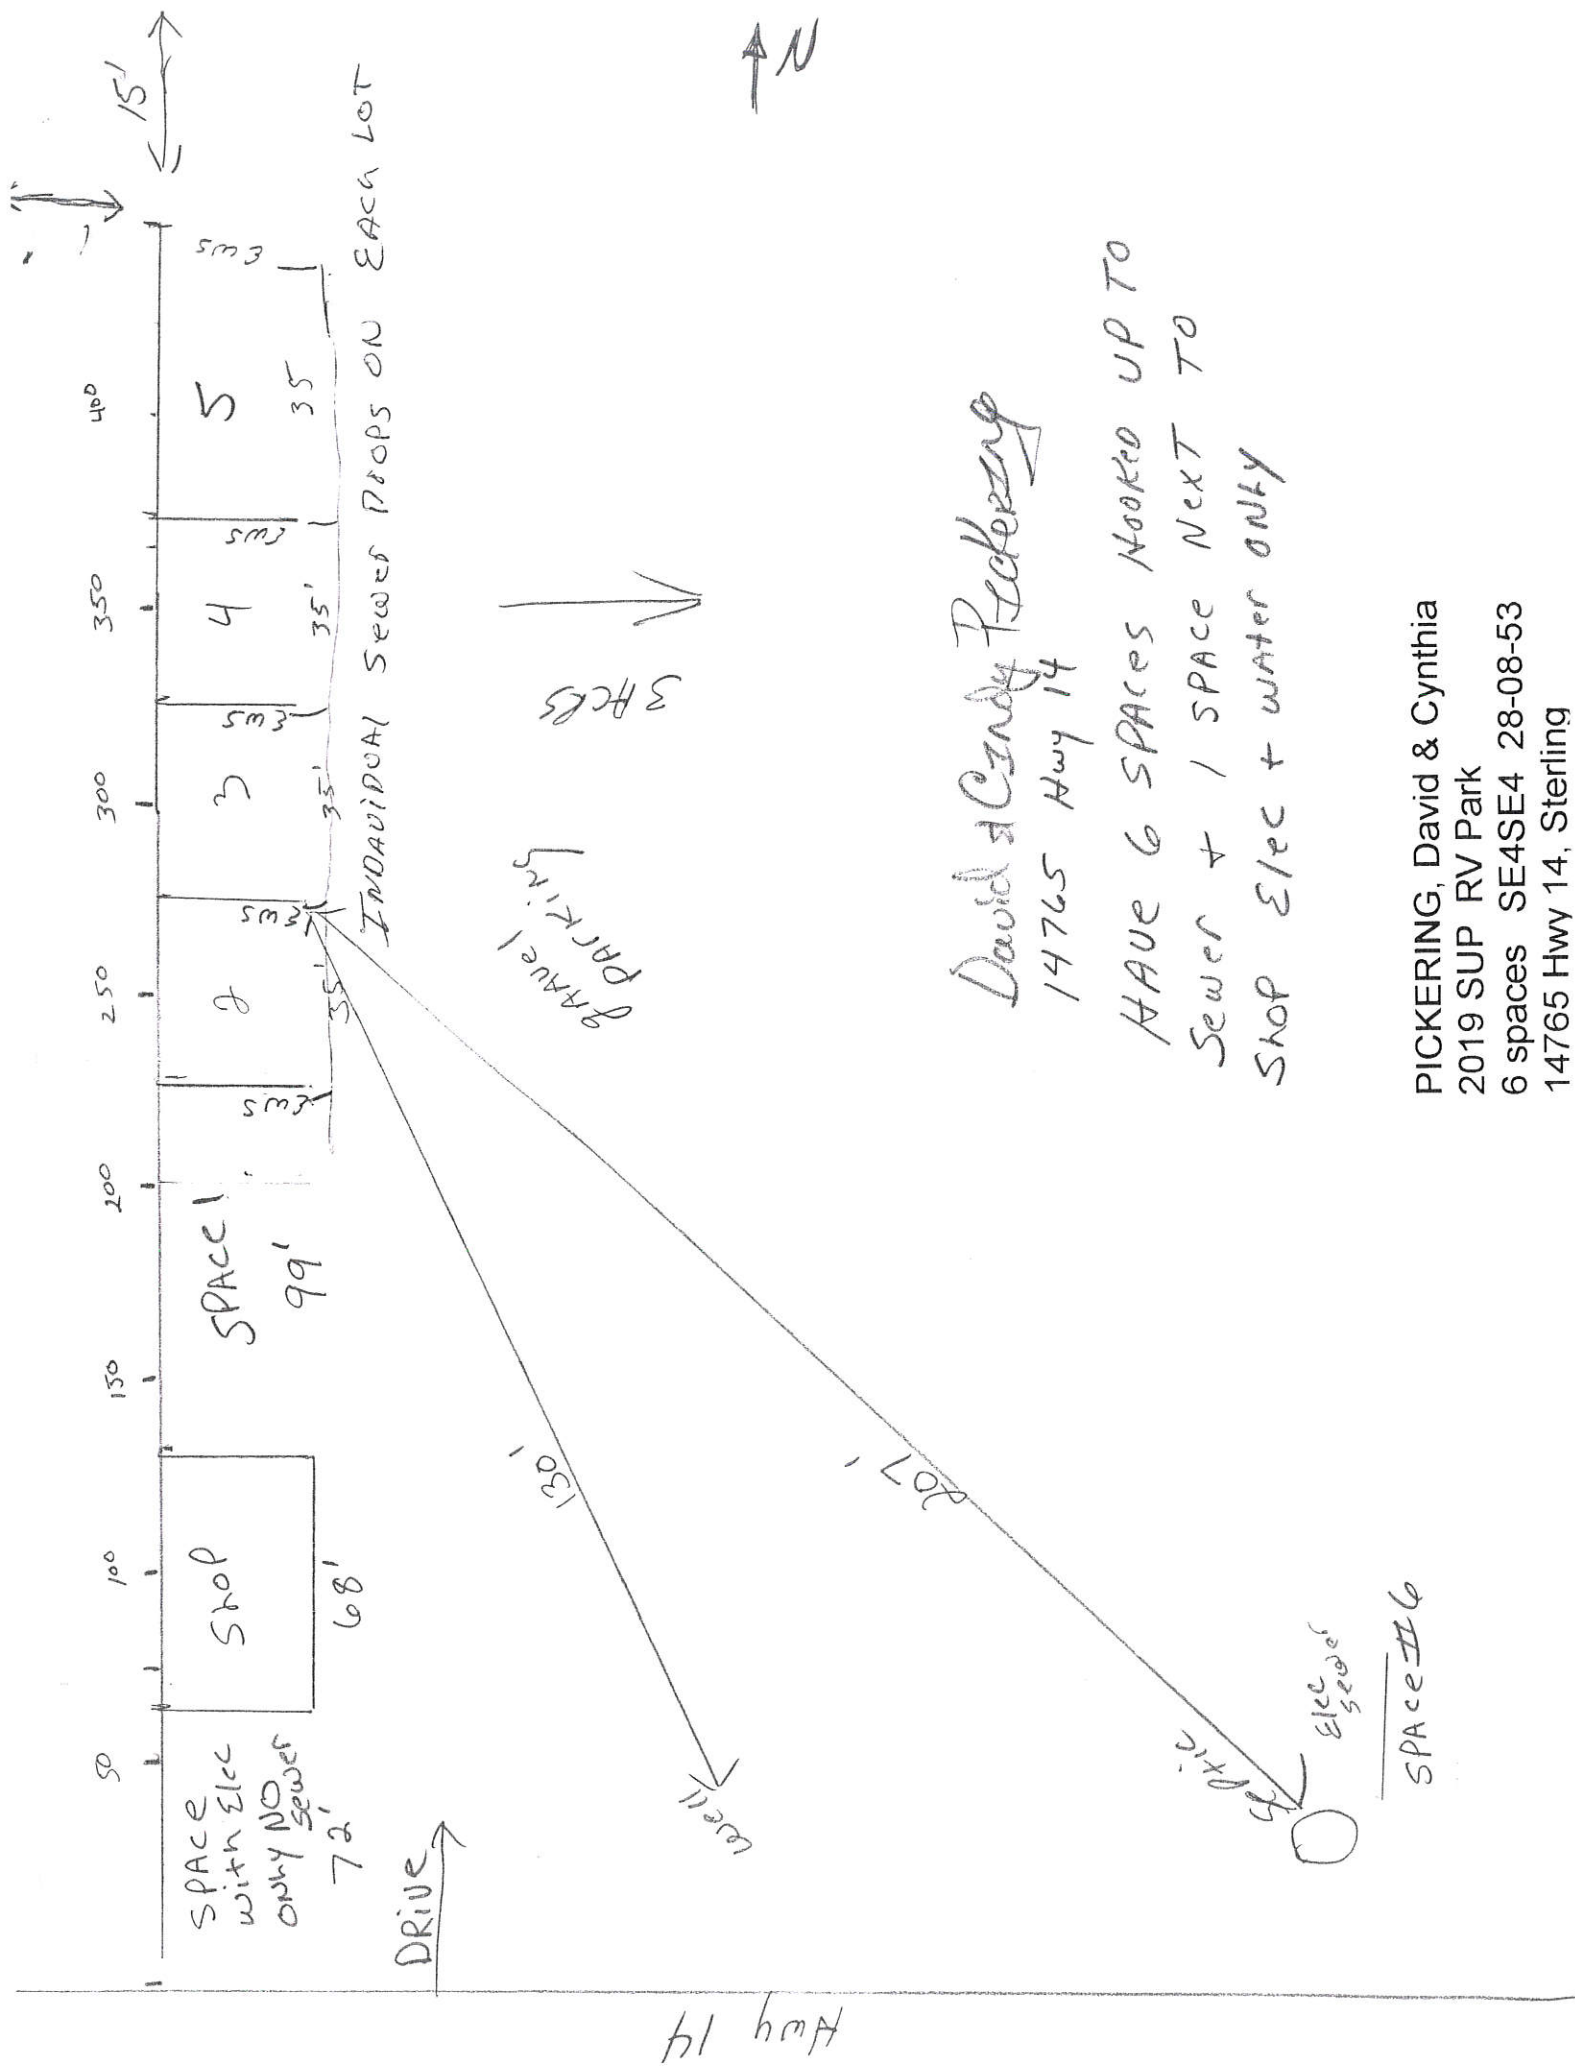 15'
50
100
150
200
250
300
350
400
SPACE
with Elec
ONLY NO
Sewer
72'
Shop
68'
SPACE 1
99'
EWS
2
35'
EWS
3
35'
EWS
4
35'
EWS
5
35
EWS
INDAVIDUAL Sewer DROPS ON EACH LOT
DRIVE
Hwy 14
130'
Well
207'
Septic
Elec
sewer
SPACE #6
gravel
PARKING
3 Acrs
N
David & Cindy Pickering
14765 Hwy 14
HAVE 6 SPACES HOOKED UP TO
Sewer + 1 SPACE NEXT TO
Shop Elec + water ONLY
PICKERING, David & Cynthia
2019 SUP RV Park
6 spaces SE4SE4 28-08-53
14765 Hwy 14, Sterling